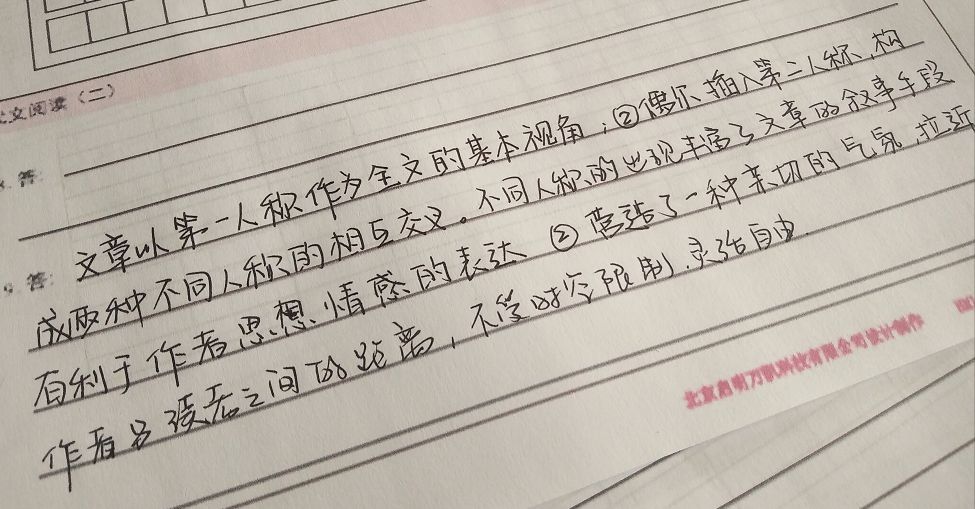 文阅读（二）
答：
答：
文章以第一人称作为全文的基本视角；②偶尔插入第二人称，构
成两种不同人称的相互交叉。不同人称的出现丰富了文章的叙事手段
有利于作者思想情感的表达 ② 营造了一种亲切的气氛，拉近
作者与读者之间的距离，不受时空限制，灵活自由.
北京启明万凯科技有限公司设计制作